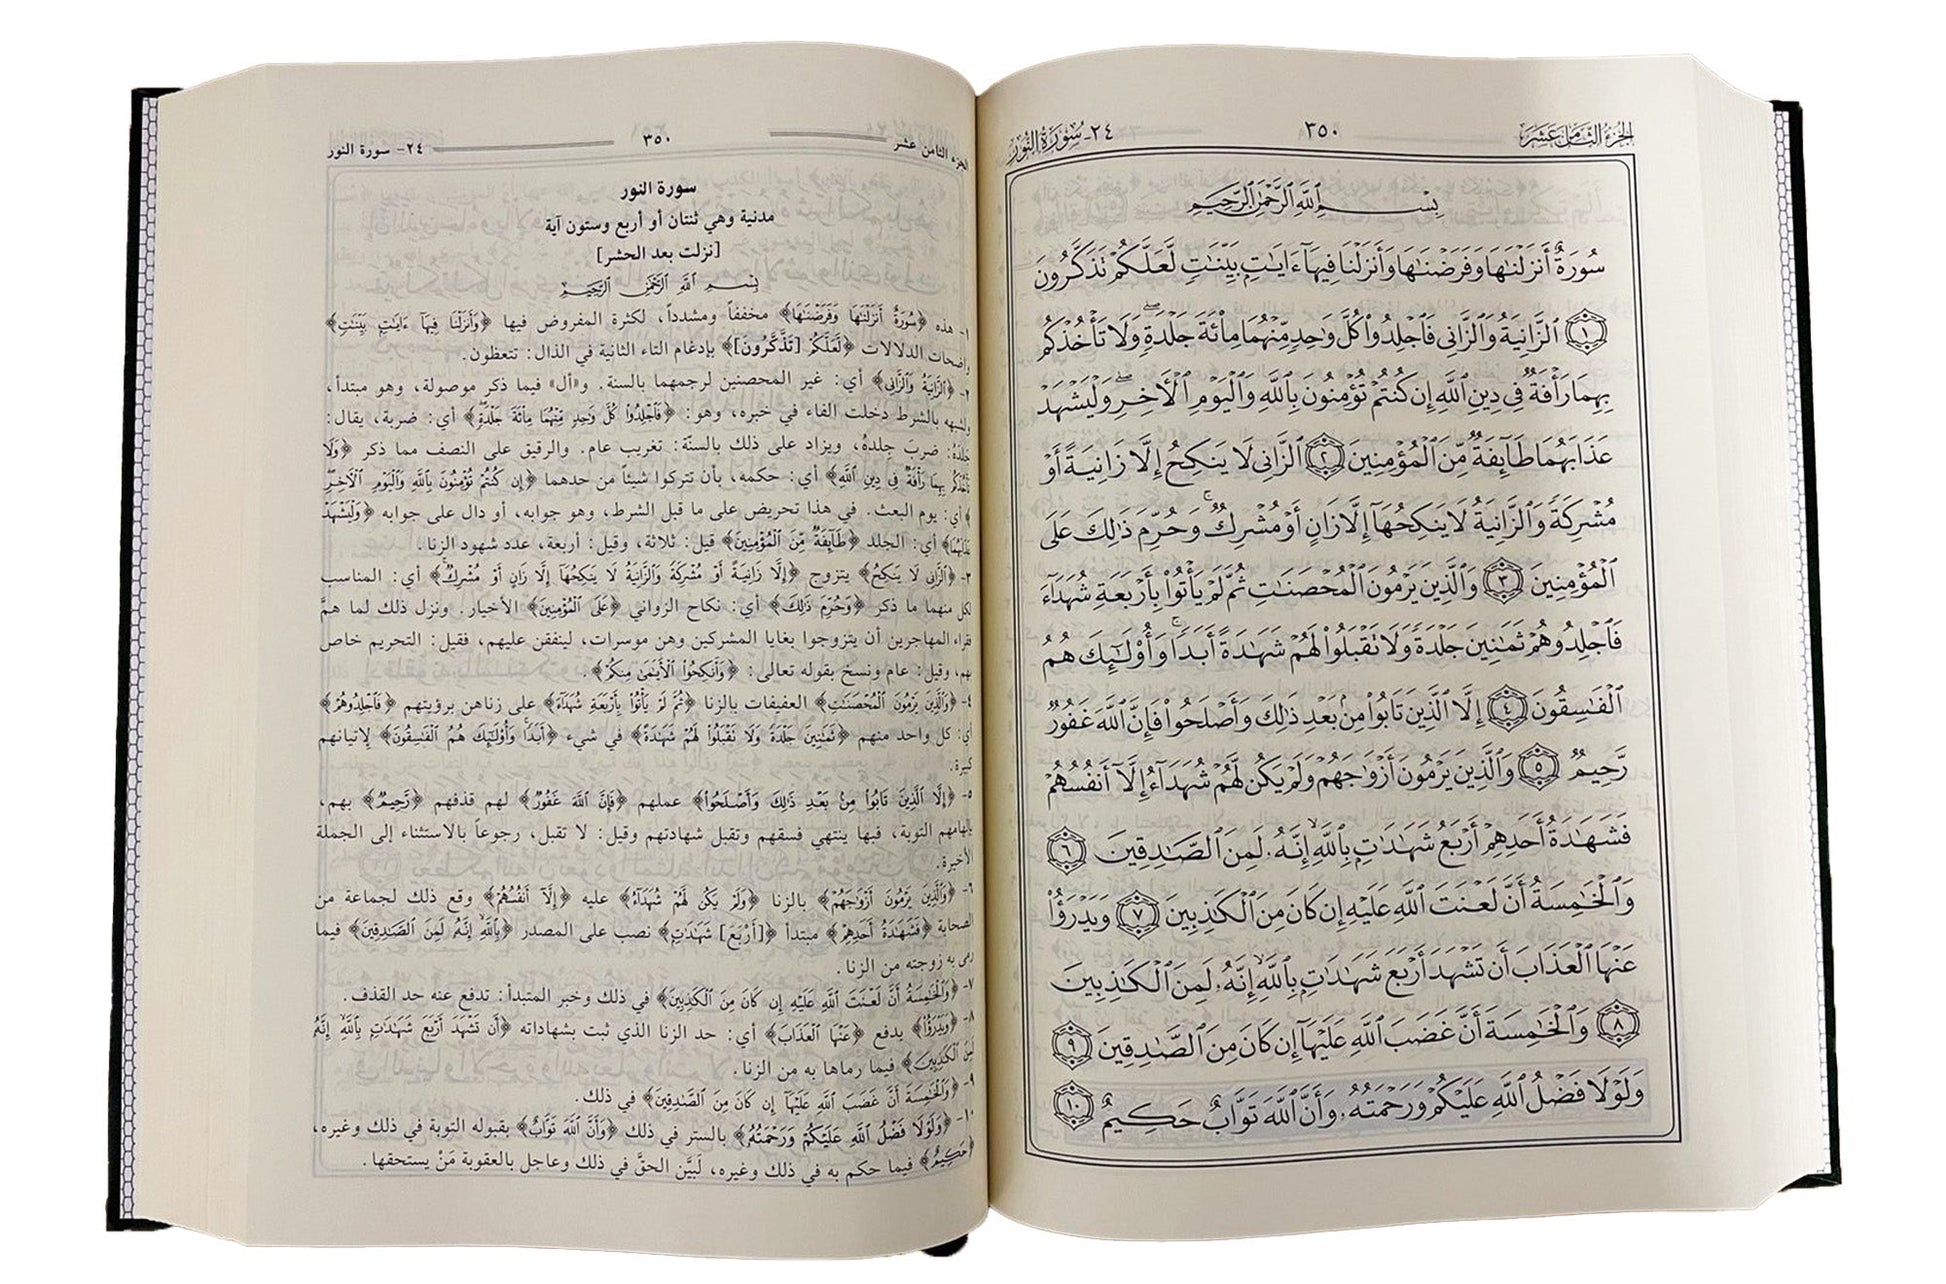 الجزء الثامن عشر ٣٥٠ ٢٤- سُورَةُ النُّور
بِسْمِ ٱللَّهِ ٱلرَّحْمَٰنِ ٱلرَّحِيمِ
سُورَةٌ أَنزَلْنَٰهَا وَفَرَضْنَٰهَا وَأَنزَلْنَا فِيهَآ ءَايَٰتٍۭ بَيِّنَٰتٍ لَّعَلَّكُمْ تَذَكَّرُونَ
١ ٱلزَّانِيَةُ وَٱلزَّانِى فَٱجْلِدُوا۟ كُلَّ وَٰحِدٍ مِّنْهُمَا مِا۟ئَةَ جَلْدَةٍ ۖ وَلَا تَأْخُذْكُم
بِهِمَا رَأْفَةٌ فِى دِينِ ٱللَّهِ إِن كُنتُمْ تُؤْمِنُونَ بِٱللَّهِ وَٱلْيَوْمِ ٱلْءَاخِرِ ۖ وَلْيَشْهَدْ
عَذَابَهُمَا طَآئِفَةٌ مِّنَ ٱلْمُؤْمِنِينَ ٢ ٱلزَّانِى لَا يَنكِحُ إِلَّا زَانِيَةً أَوْ
مُشْرِكَةً وَٱلزَّانِيَةُ لَا يَنكِحُهَآ إِلَّا زَانٍ أَوْ مُشْرِكٌ ۚ وَحُرِّمَ ذَٰلِكَ عَلَى
ٱلْمُؤْمِنِينَ ٣ وَٱلَّذِينَ يَرْمُونَ ٱلْمُحْصَنَٰتِ ثُمَّ لَمْ يَأْتُوا۟ بِأَرْبَعَةِ شُهَدَآءَ
فَٱجْلِدُوهُمْ ثَمَٰنِينَ جَلْدَةً وَلَا تَقْبَلُوا۟ لَهُمْ شَهَٰدَةً أَبَدًا ۚ وَأُو۟لَٰٓئِكَ هُمُ
ٱلْفَٰسِقُونَ ٤ إِلَّا ٱلَّذِينَ تَابُوا۟ مِنۢ بَعْدِ ذَٰلِكَ وَأَصْلَحُوا۟ فَإِنَّ ٱللَّهَ غَفُورٌ
رَّحِيمٌ ٥ وَٱلَّذِينَ يَرْمُونَ أَزْوَٰجَهُمْ وَلَمْ يَكُن لَّهُمْ شُهَدَآءُ إِلَّآ أَنفُسُهُمْ
فَشَهَٰدَةُ أَحَدِهِمْ أَرْبَعُ شَهَٰدَٰتٍۭ بِٱللَّهِ ۙ إِنَّهُۥ لَمِنَ ٱلصَّٰدِقِينَ ٦
وَٱلْخَٰمِسَةُ أَنَّ لَعْنَتَ ٱللَّهِ عَلَيْهِ إِن كَانَ مِنَ ٱلْكَٰذِبِينَ ٧ وَيَدْرَؤُا۟
عَنْهَا ٱلْعَذَابَ أَن تَشْهَدَ أَرْبَعَ شَهَٰدَٰتٍۭ بِٱللَّهِ ۙ إِنَّهُۥ لَمِنَ ٱلْكَٰذِبِينَ
٨ وَٱلْخَٰمِسَةَ أَنَّ غَضَبَ ٱللَّهِ عَلَيْهَآ إِن كَانَ مِنَ ٱلصَّٰدِقِينَ ٩
وَلَوْلَا فَضْلُ ٱللَّهِ عَلَيْكُمْ وَرَحْمَتُهُۥ وَأَنَّ ٱللَّهَ تَوَّابٌ حَكِيمٌ ١٠
الجزء الثامن عشر ٣٥٠ ٢٤- سورة النور
سورة النور
مدنية وهي ثنتان أو أربع وستون آية
[نزلت بعد الحشر]
بِسْمِ ٱللَّهِ ٱلرَّحْمَٰنِ ٱلرَّحِيمِ
١- هذه ﴿سُورَةٌ أَنزَلْنَٰهَا وَفَرَضْنَٰهَا﴾ مخففاً ومشدداً، لكثرة المفروض فيها ﴿وَأَنزَلْنَا فِيهَآ ءَايَٰتٍۭ بَيِّنَٰتٍ﴾
واضحات الدلالات ﴿لَّعَلَّكُمْ [تَذَّكَّرُونَ]﴾ بإدغام التاء الثانية في الذال: تتعظون.
٢- ﴿ٱلزَّانِيَةُ وَٱلزَّانِى﴾ أي: غير المحصنين لرجمهما بالسنة. و«أل» فيما ذكر موصولة، وهو مبتدأ،
ولشبهه بالشرط دخلت الفاء في خبره، وهو: ﴿فَٱجْلِدُوا۟ كُلَّ وَٰحِدٍ مِّنْهُمَا مِا۟ئَةَ جَلْدَةٍ﴾ أي: ضربة، يقال:
جَلَدَهُ: ضربَ جِلدهُ، ويزاد على ذلك بالسنّة: تغريب عام. والرقيق على النصف مما ذكر ﴿وَلَا
تَأْخُذْكُم بِهِمَا رَأْفَةٌ فِى دِينِ ٱللَّهِ﴾ أي: حكمه، بأن تتركوا شيئاً من حدهما ﴿إِن كُنتُمْ تُؤْمِنُونَ بِٱللَّهِ وَٱلْيَوْمِ ٱلْءَاخِرِ
﴾ أي: يوم البعث. في هذا تحريض على ما قبل الشرط، وهو جوابه، أو دال على جوابه ﴿وَلْيَشْهَدْ
عَذَابَهُمَا﴾ أي: الجلد ﴿طَآئِفَةٌ مِّنَ ٱلْمُؤْمِنِينَ﴾ قيل: ثلاثة، وقيل: أربعة، عدد شهود الزنا.
٣- ﴿ٱلزَّانِى لَا يَنكِحُ﴾ يتزوج ﴿إِلَّا زَانِيَةً أَوْ مُشْرِكَةً وَٱلزَّانِيَةُ لَا يَنكِحُهَآ إِلَّا زَانٍ أَوْ مُشْرِكٌ﴾ أي: المناسب
لكل منهما ما ذكر ﴿وَحُرِّمَ ذَٰلِكَ﴾ أي: نكاح الزواني ﴿عَلَى ٱلْمُؤْمِنِينَ﴾ الأخيار. ونزل ذلك لما همَّ
فقراء المهاجرين أن يتزوجوا بغايا المشركين وهن موسرات، لينفقن عليهم، فقيل: التحريم خاص
بهم، وقيل: عام ونسخ بقوله تعالى: ﴿وَأَنكِحُوا۟ ٱلْأَيَٰمَىٰ مِنكُمْ﴾.
٤- ﴿وَٱلَّذِينَ يَرْمُونَ ٱلْمُحْصَنَٰتِ﴾ العفيفات بالزنا ﴿ثُمَّ لَمْ يَأْتُوا۟ بِأَرْبَعَةِ شُهَدَآءَ﴾ على زناهن برؤيتهم ﴿فَٱجْلِدُوهُمْ﴾
أي: كل واحد منهم ﴿ثَمَٰنِينَ جَلْدَةً وَلَا تَقْبَلُوا۟ لَهُمْ شَهَٰدَةً﴾ في شيء ﴿أَبَدًا ۚ وَأُو۟لَٰٓئِكَ هُمُ ٱلْفَٰسِقُونَ﴾ لإتيانهم
كبيرة.
٥- ﴿إِلَّا ٱلَّذِينَ تَابُوا۟ مِنۢ بَعْدِ ذَٰلِكَ وَأَصْلَحُوا۟﴾ عملهم ﴿فَإِنَّ ٱللَّهَ غَفُورٌ﴾ لهم قذفهم ﴿رَّحِيمٌ﴾ بهم،
بإلهامهم التوبة، فبها ينتهي فسقهم وتقبل شهادتهم وقيل: لا تقبل، رجوعاً بالاستثناء إلى الجملة
الأخيرة.
٦- ﴿وَٱلَّذِينَ يَرْمُونَ أَزْوَٰجَهُمْ﴾ بالزنا ﴿وَلَمْ يَكُن لَّهُمْ شُهَدَآءُ﴾ عليه ﴿إِلَّآ أَنفُسُهُمْ﴾ وقع ذلك لجماعة من
الصحابة ﴿فَشَهَٰدَةُ أَحَدِهِمْ﴾ مبتدأ ﴿[أَرْبَعَ] شَهَٰدَٰتٍۭ﴾ نصب على المصدر ﴿بِٱللَّهِ ۙ إِنَّهُۥ لَمِنَ ٱلصَّٰدِقِينَ﴾ فيما
رمى به زوجته من الزنا.
٧- ﴿وَٱلْخَٰمِسَةُ أَنَّ لَعْنَتَ ٱللَّهِ عَلَيْهِ إِن كَانَ مِنَ ٱلْكَٰذِبِينَ﴾ في ذلك وخبر المبتدأ: تدفع عنه حد القذف.
٨- ﴿وَيَدْرَؤُا۟﴾ يدفع ﴿عَنْهَا ٱلْعَذَابَ﴾ أي: حد الزنا الذي ثبت بشهاداته ﴿أَن تَشْهَدَ أَرْبَعَ شَهَٰدَٰتٍۭ بِٱللَّهِ ۙ إِنَّهُۥ
لَمِنَ ٱلْكَٰذِبِينَ﴾ فيما رماها به من الزنا.
٩- ﴿وَٱلْخَٰمِسَةَ أَنَّ غَضَبَ ٱللَّهِ عَلَيْهَآ إِن كَانَ مِنَ ٱلصَّٰدِقِينَ﴾ في ذلك.
١٠- ﴿وَلَوْلَا فَضْلُ ٱللَّهِ عَلَيْكُمْ وَرَحْمَتُهُۥ﴾ بالستر في ذلك ﴿وَأَنَّ ٱللَّهَ تَوَّابٌ﴾ بقبوله التوبة في ذلك وغيره،
﴿حَكِيمٌ﴾ فيما حكم به في ذلك وغيره، لَبيَّن الحقَّ في ذلك وعاجل بالعقوبة مَنْ يستحقها.